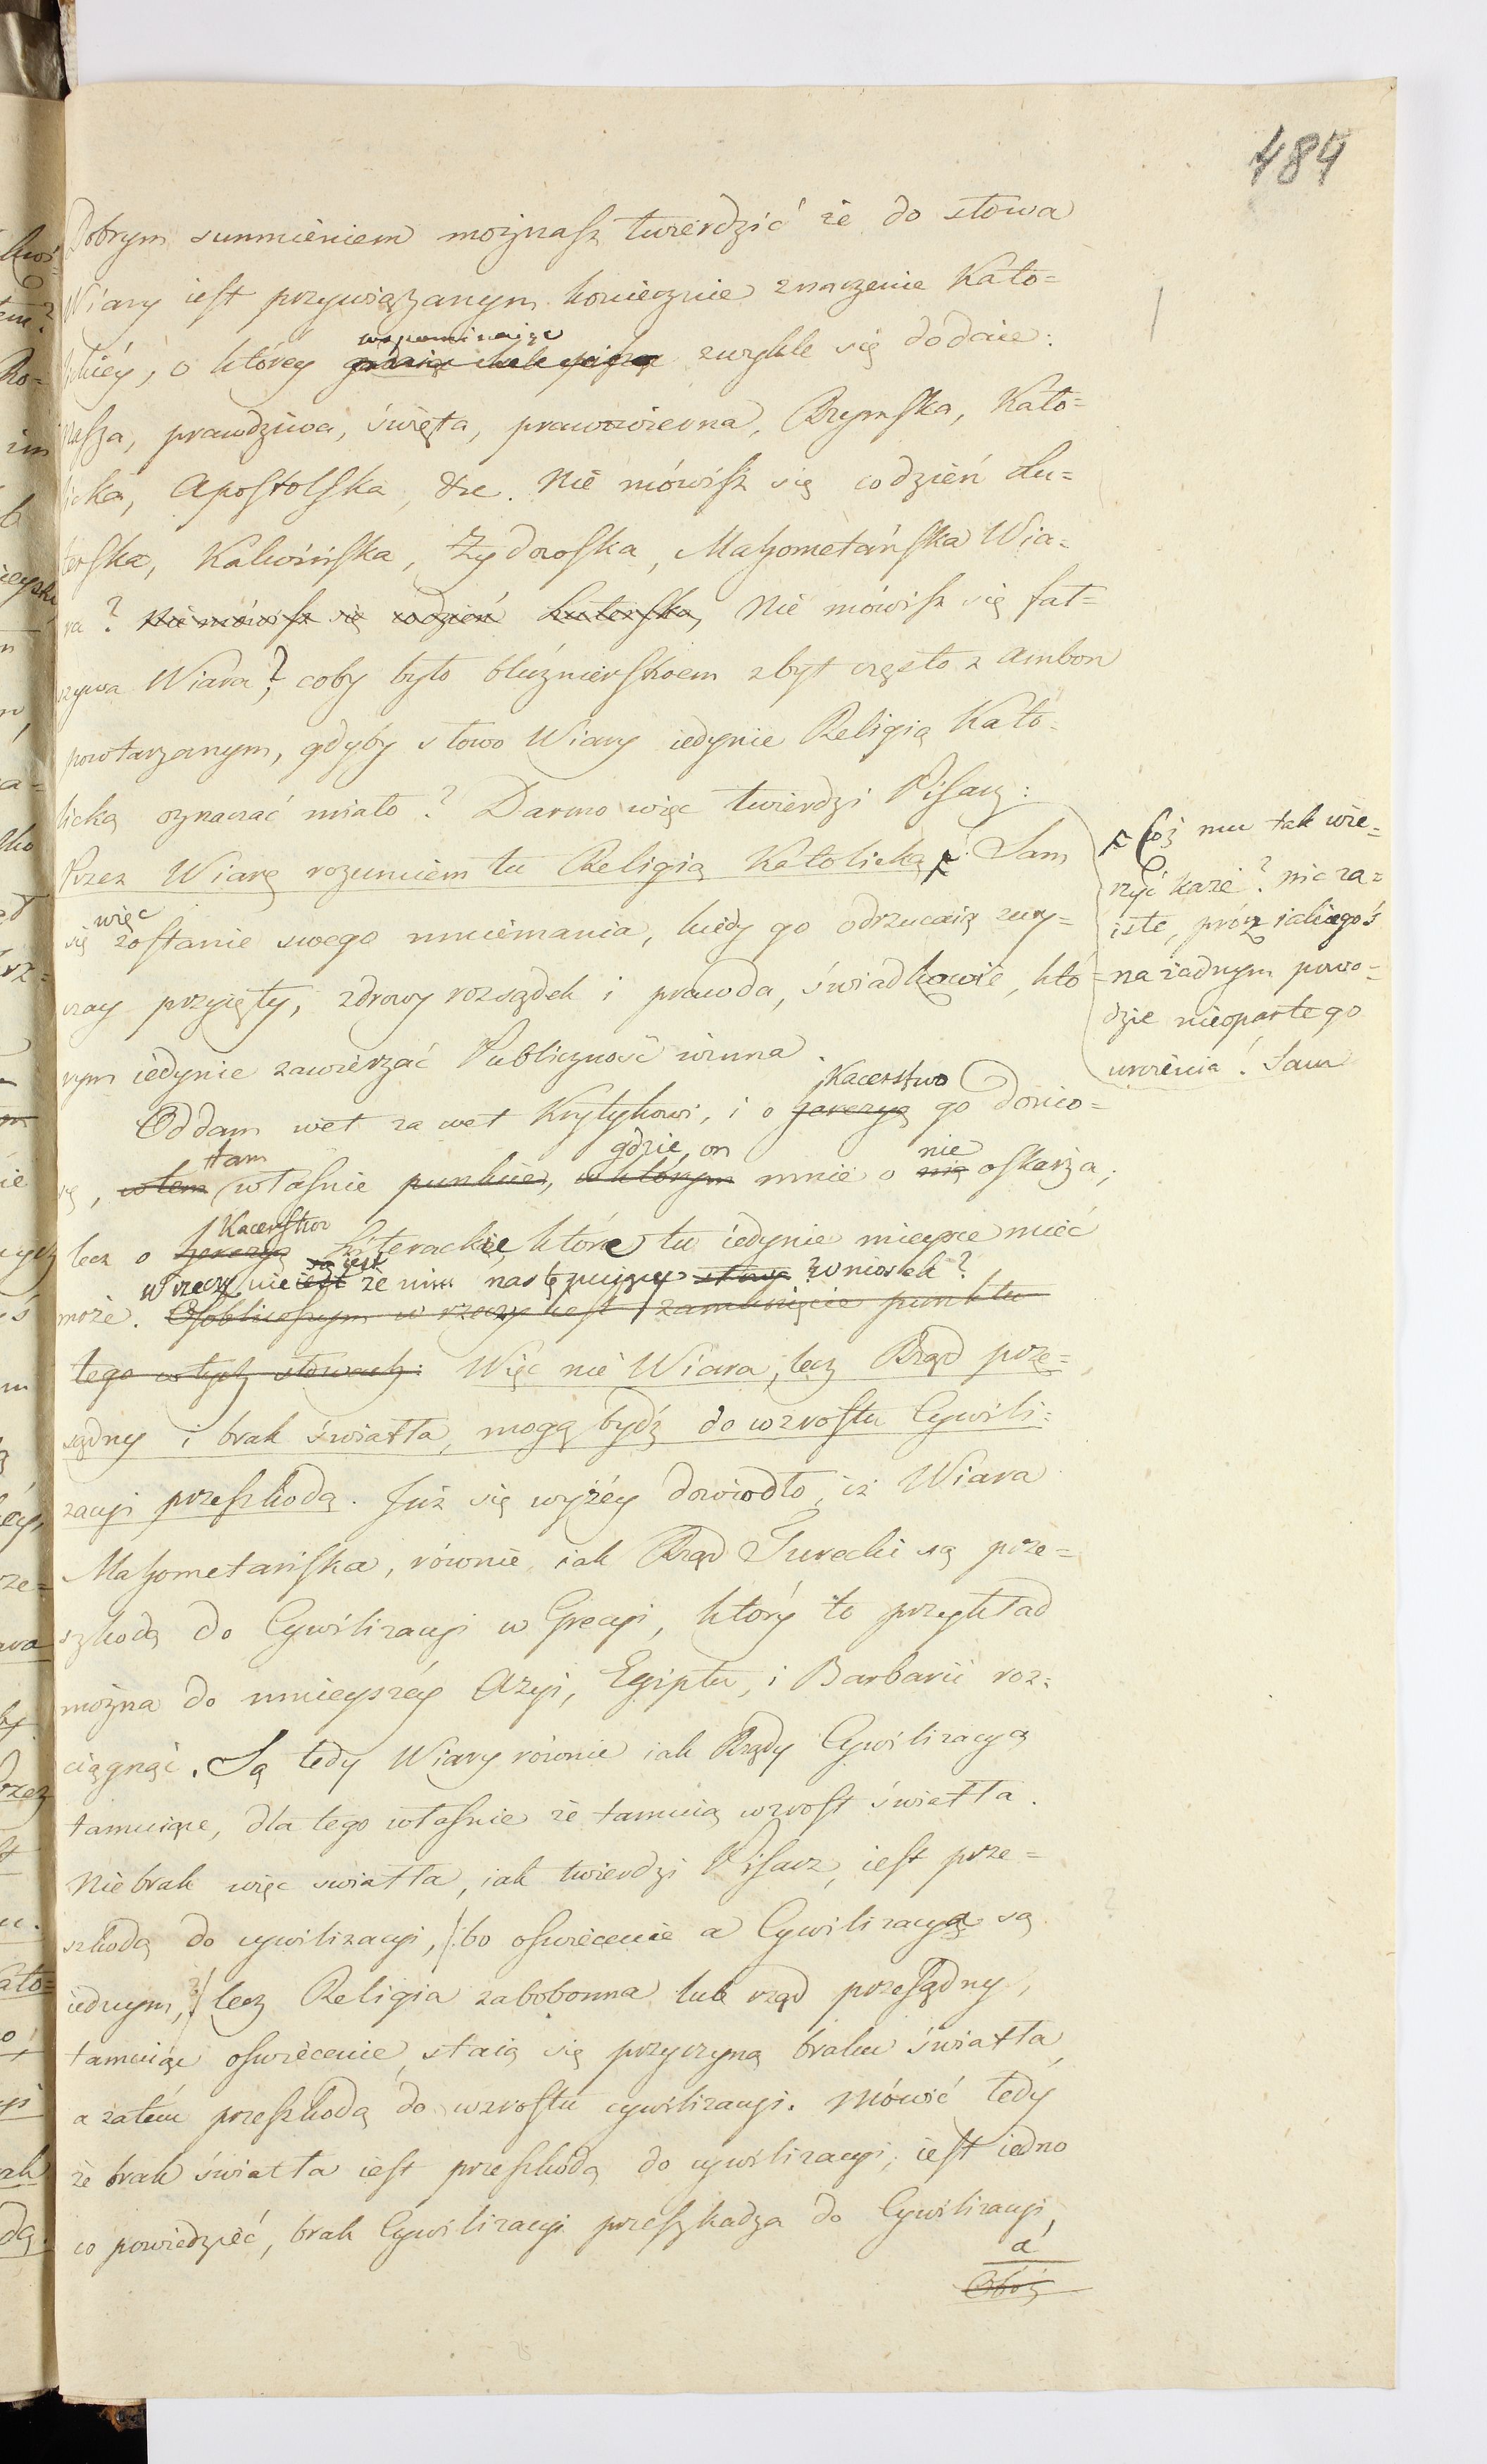 489
Dobrym sumnieniem możnasz twierdzić że do słowa
Wiary iest przywiązanym koniecznie znaczenie Kato=
lickiéy, o któréy wspominaiąc zwykle się dodaie:
nasza, prawdziwa, święta, prawowierna, Rzymska, Kato=
licka, Apostolska, &c. Nie mówisz się codzień Lu=
terska, Kalwińska, Żydowska, Mahometańska Wia=
ra? Nie mówisz się codzień Luterska, Nie mówisz się fał=
szywa Wiara? coby było bluźnierstwem zbyt często z Ambon
powtarzanym, gdyby słowo Wiary iedynie Religią Kato=
licką oznaczać miało? Darmo więc twierdzi Pisarz:
Przez Wiarę rozumiem tu Religią Katolicką. Sam
więc
się zostanie swego mniemania, kiedy go odrzucaią zwy=
czay przyięty, zdrowy rozsądek i prawda, świadkowie, któ=
rym iedynie zawierzać Publiczność winna.
Cóż mu tak wie=
rzyć każe? nic za=
iste, prócz iakiegoś
na żadnym powo=
dzie nieopartego
uroienia! Sam
Kacerstwo
Oddam wet za wet Krytykowi, i o herezyą go donio=
tam gdzie on nie
sę, w tem własnie punkcie, w którym mnie o nię oskarża;
Kacerstwo
lecz o herezyą Literackie, które tu iedynie mieysce mieć
W rzeczy nie iest że nim następuiący wniosek?
może. Osobliwszym w rzeczy iest zamknięcie punktu
tego w tych słowach: Więc nie Wiara, lecz Rząd prze=
sądny i brak światła, mogą bydź do wzrostu Cywili=
zacyi przeszkodą. Już się wyżéy dowiodło, iż Wiara
Mahometańska, równie iak Rząd Turecki są prze=
szkodą do Cywilizacyi w Grecyi, który to przykład
można do mnieyszéy Azyi, Egiptu, i Barbarii roz=
ciągnąć. Są tedy Wiary równie iak Rządy Cywilizacyą
tamuiące, dla tego własnie że tamuią wzrost światła.
Nie brak więc swiatła, iak twierdzi Pisarz, iest prze=
szkodą do cywilizacyi, /:bo oswiecenie a Cywilizacya są
iednym,:/ lecz Religia zabobonna lub rząd przesądny,
tamuiąc oswiecenie, staią się przyczyną braku światła,
a zatém przeszkodą do wzrostu cywilizacyi. Mówić tedy
że brak światła iest przeszkodą do cywilizacyi, iest iedno
co powiedzieć, brak Cywilizacyi przeszkadza do Cywilizacyi,
a